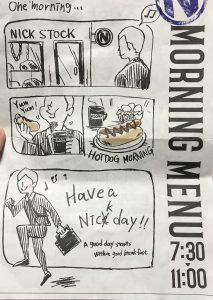 One morning...
NICK STOCK
N
YUM
YUM!
HOTDOG MORNING
Have a
k
NICE day!!
A good day starts
with a good breakfast.
N
MORNING MENU
7:30
11:00